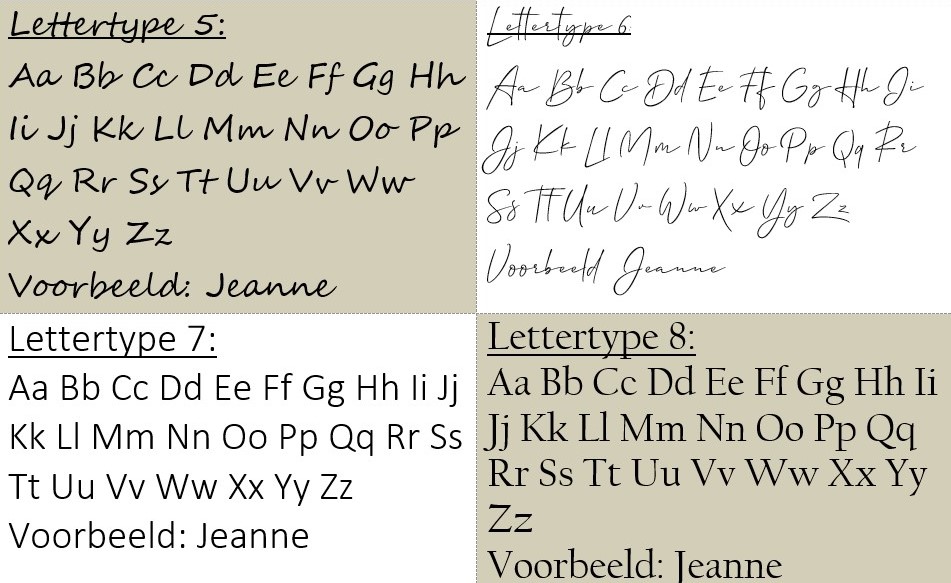 Lettertype 5:
Aa Bb Cc Dd Ee Ff Gg Hh
Ii Jj Kk Ll Mm Nn Oo Pp
Qq Rr Ss Tt Uu Vv Ww
Xx Yy Zz
Voorbeeld: Jeanne
Lettertype 6:
Aa Bb Cc Dd Ee Ff Gg Hh Ii
Jj Kk Ll Mm Nn Oo Pp Qq Rr
Ss Tt Uu Vv Ww Xx Yy Zz
Voorbeeld Jeanne
Lettertype 7:
Aa Bb Cc Dd Ee Ff Gg Hh Ii Jj
Kk Ll Mm Nn Oo Pp Qq Rr Ss
Tt Uu Vv Ww Xx Yy Zz
Voorbeeld: Jeanne
Lettertype 8:
Aa Bb Cc Dd Ee Ff Gg Hh Ii
Jj Kk Ll Mm Nn Oo Pp Qq
Rr Ss Tt Uu Vv Ww Xx Yy
Zz
Voorbeeld: Jeanne